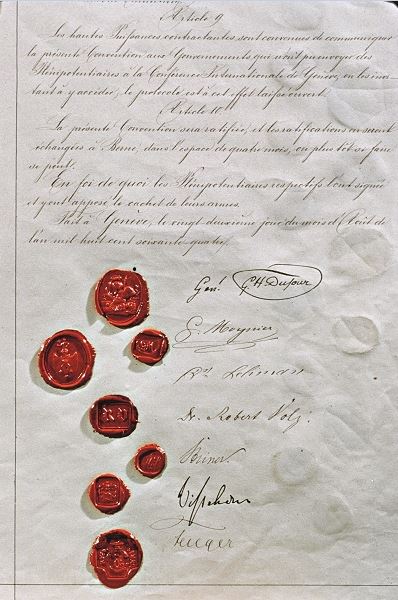 Article 9
Les hautes Puissances contractantes, sont convenues de communiquer
la présente Convention aux Gouvernements qui n'ont pu envoyer des
Plénipotentiaires à la Conférence Internationale de Genève, en les invi-
tant à y accéder; le protocole est à cet effet laissé ouvert.
Article 10.
La présente Convention sera ratifiée, et les ratifications en seront
échangées à Berne, dans l'espace de quatre mois, ou plus tôt si faire
se peut.
En foi de quoi les Plénipotentiaires respectifs l'ont signée
et y ont apposé le cachet de leurs armes.
Fait à Genève, le vingt deuxième jour du mois d'Août de
l'an mil huit cent soixante quatre.
Genl. GH Dufour
G. Moynier
Dr. Lehman
Dr. Robert Volz.
Steiner.
Visschers